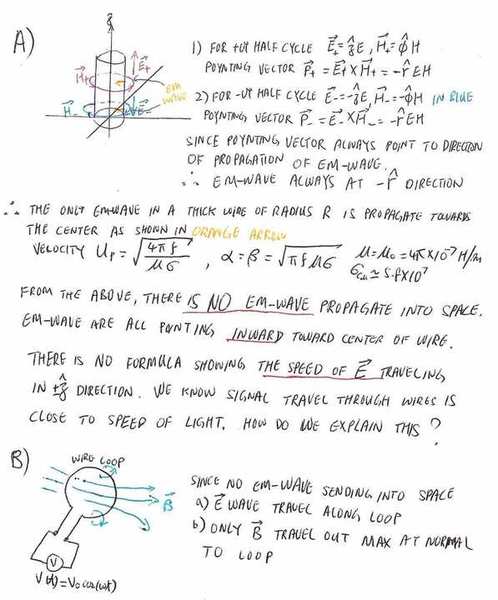 A)
ẑ
E⃗+
H⃗+
EM
WAVE
H⃗-
E⃗-
1) FOR +VE HALF CYCLE E⃗+=ẑE, H⃗+=φ̂H
POYNTING VECTOR P⃗+ = E⃗+ X H⃗+ = -r̂EH
2) FOR -VE HALF CYCLE E⃗-=-ẑE, H⃗-=-φ̂H IN BLUE
POYNTING VECTOR P⃗- = E⃗- X H⃗- = -r̂EH
SINCE POYNTING VECTOR ALWAYS POINT TO DIRECTION
OF PROPAGATION OF EM-WAVE.
∴ EM-WAVE ALWAYS AT -r̂ DIRECTION
∴ THE ONLY EM-WAVE IN A THICK WIRE OF RADIUS R IS PROPAGATE TOWARDS
THE CENTER AS SHOWN IN ORANGE ARROW
VELOCITY Up = √(4πf/μσ) , α=β=√(πfμσ) μ=μ₀=4πX10⁻⁷ H/m
≃5.8X10⁷
FROM THE ABOVE, THERE IS NO EM-WAVE PROPAGATE INTO SPACE.
EM-WAVE ARE ALL POINTING INWARD TOWARD CENTER OF WIRE.
THERE IS NO FORMULA SHOWING THE SPEED OF E⃗ TRAVELING
IN ±ẑ DIRECTION. WE KNOW SIGNAL TRAVEL THROUGH WIRES IS
CLOSE TO SPEED OF LIGHT. HOW DO WE EXPLAIN THIS?
B)
WIRE LOOP
B⃗
V
V(t)=V₀cos(ωt)
SINCE NO EM-WAVE SENDING INTO SPACE
a) E⃗ WAVE TRAVEL ALONG LOOP
b) ONLY B⃗ TRAVEL OUT MAX AT NORMAL
TO LOOP